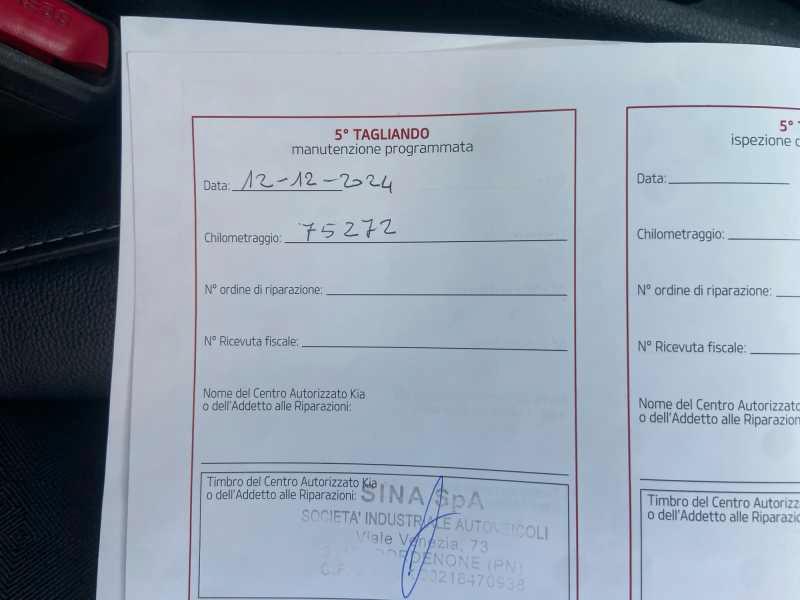 5° TAGLIANDO
manutenzione programmata
Data: 12-12-2024
Chilometraggio: 75272
N° ordine di riparazione:
N° Ricevuta fiscale:
Nome del Centro Autorizzato Kia
o dell'Addetto alle Riparazioni:
Timbro del Centro Autorizzato Kia
o dell'Addetto alle Riparazioni:
SINA SpA
SOCIETA' INDUSTRIALE AUTOVEICOLI
Viale Venezia, 73
PORDENONE (PN)
5°
ispezione
Data:
Chilometraggio:
N° ordine di riparazione:
N° Ricevuta fiscale:
Nome del Centro Autorizzato
o dell'Addetto alle Riparazion
Timbro del Centro Autorizz
o dell'Addetto alle Riparazio